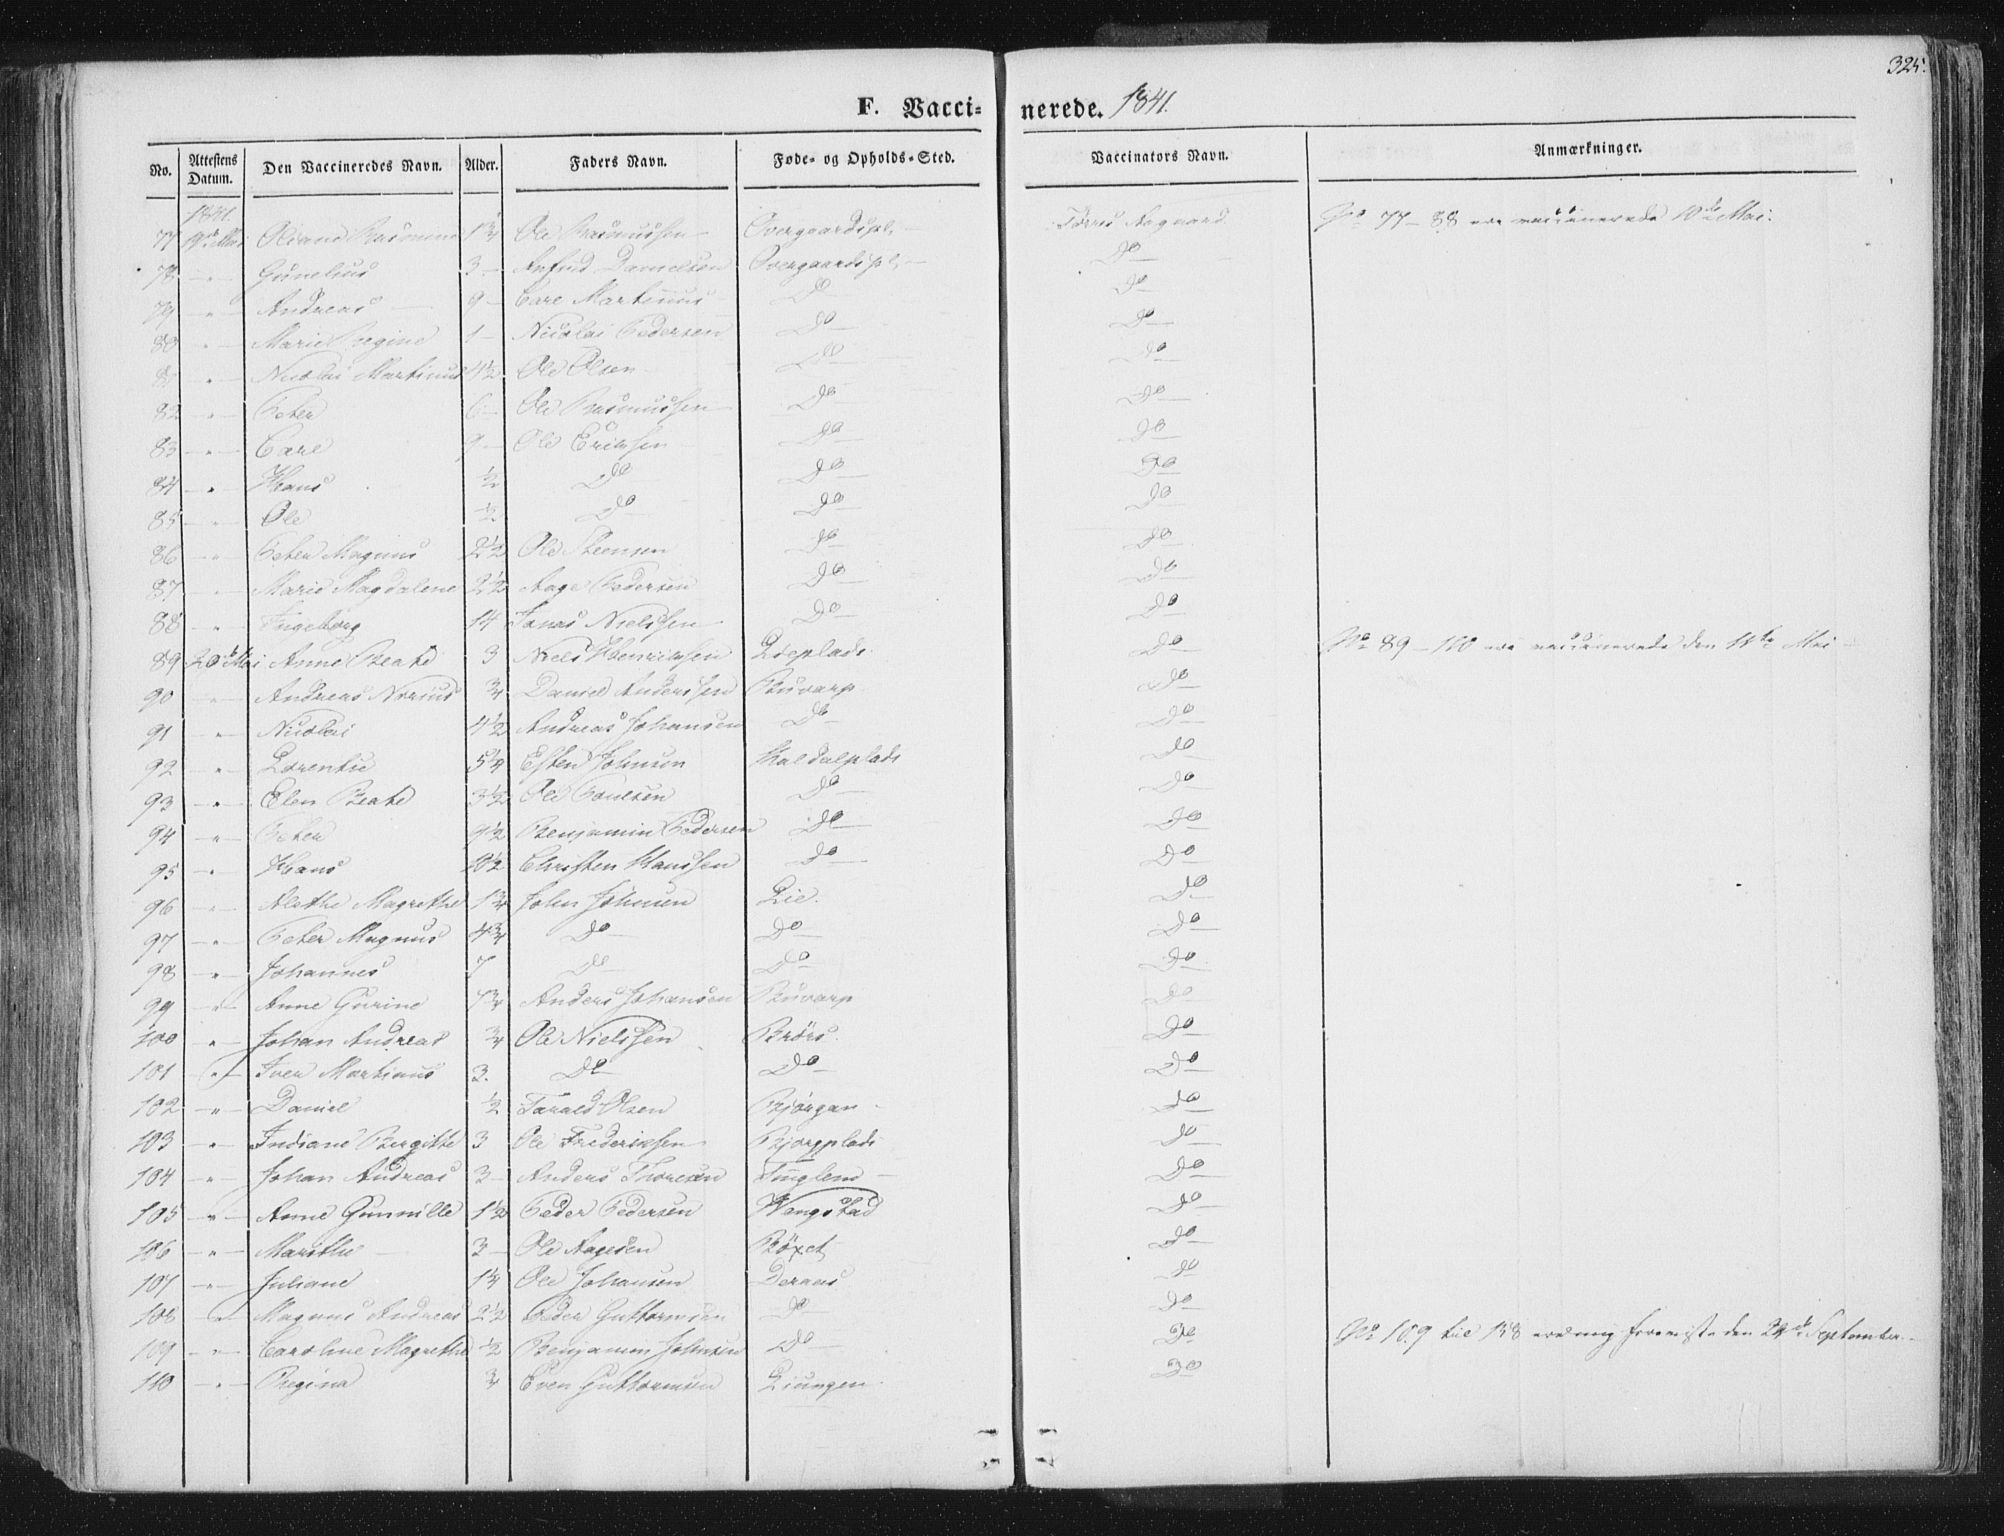 325.
F. Vacci= nerede. 1841.
No. Attestens Datum. Den Vaccineredes Navn. Alder. Faders Navn. Føde= og Opholds=Sted. Vaccinators Navn. Anmærkninger.
1841.
77 Oliane Rasmine 1¾ Ole Rasmussen Overgaardspl. Aagaard No 77-88 ere vaccinerede 10de Mai.
78 - " - Gunelius 3 - Danielsen Overgaardspl. Do
79 " Andreas 9 - Carl Martinus Do Do
80 - " - Marie Regine 1 - Nicolai Pedersen Do Do
81 " Nicolai Martinus 4½ Ole Olsen Do Do
82 - " - Peter 6 - Ole Rasmussen Do Do
83 - " - Carl 9 - Ole Eriksen Do Do
84 - " - Hans ½ Do Do Do
85 - " - Ole ½ Do Do Do
86 - " - Peter Magnus 2½ Ole Steensen Do Do
87 - " - Marie Magdalene 2½ Aage Pedersen Do Do
88 - " - Ingeborg 14 Jonas Nielssen Do Do
89 20de Mai Anne Beate 3 Niels Henriksen Lieplads Do No 89-110 ere vaccinerede den 11te Mai
90 - " - Andreas Norius ¾ Daniel Anderssen Buvarp Do
91 - " - Nicolai 4½ Andreas Johansen Do Do
92 " Lorentse 5¼ Esten Johnsen Haldalplads Do
93 - " - Elen Beate 3½ Ole Poulsen Do Do
94 - " - Peter 9½ Benjamin Pedersen Do Do
95 " Hans 10½ Christen Hanssen Do Do
96 - " - Alethe Magrethe 1¾ John Johnsen Lie. Do
97 - " - Peter Magnus 4¾ Do Do Do
98 " Johannes 7 Do Do Do
99 - " - Anne Gurine 7¾ Anders Johansen Buvarp Do
100 " Johan Andreas ¾ Ole Nielssen Brörs Do
101 - " - Iver Martinus 3. Do Do Do
102 - " - Daniel ½ Tarald Olsen Bjørgan Do
103 " Indiane Bergitte 3 Ole Frederiksen Bjorgplads Do
104 - " - Johan Andreas 3 - Anders Thoresen Tinglem Do
105 - " - Anne Gunnille 1½ Peder Pedersen Wengstad Do
106 - " - Marithe 3 - Ole Aagesen Böxet Do
107 - " - Juliane 1¼ Ole Johansen Deraas Do
108 - " - Magnus Andreas 2½ Peder Guttormsen Do Do
109 - " - Caroline Magrethe ½ Benjamin Johnsen Do Do No 109 til 138 ere mig foreviste den September.
110 - " - Regina ¾ Even Guttormsen Liungen Do